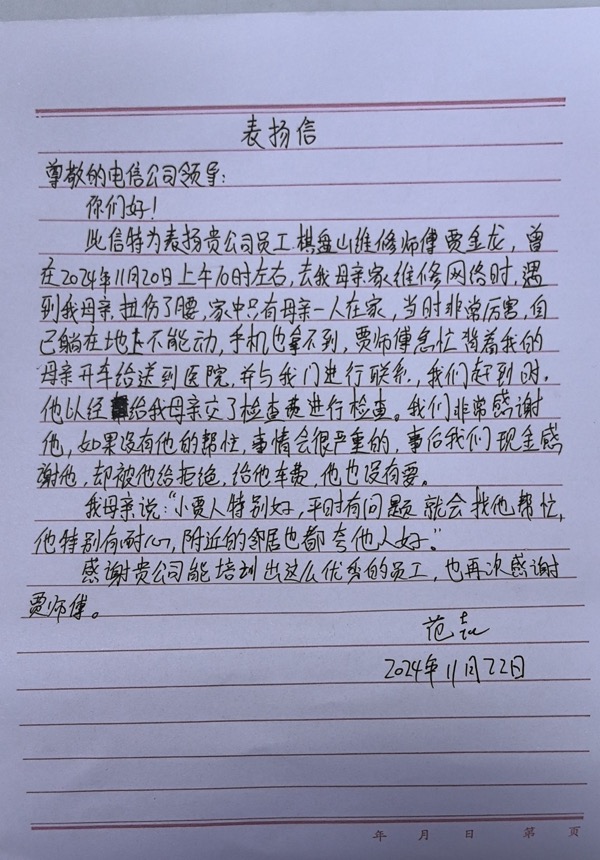 表扬信
尊敬的电信公司领导：
你们好！
此信特为表扬贵公司员工棋盘山维修师傅贾金龙，曾
在2024年11月20日上午10时左右，去我母亲家维修网络时，遇
到我母亲扭伤了腰，家中只有母亲一人在家，当时非常厉害，自
己躺在地上不能动，手机也拿不到，贾师傅急忙背着我的
母亲开车给送到医院，并与我门进行联系，我们赶到时，
他以经给我母亲交了检查费进行检查。我们非常感谢
他，如果没有他的帮忙，事情会很严重的，事后我们现金感
谢他，却被他给拒绝，给他车费，他也没有要。
我母亲说：“小贾人特别好，平时有问题就会找他帮忙，
他特别有耐心，附近的邻居也都夸他人好。”
感谢贵公司能培训出这么优秀的员工，也再次感谢
贾师傅。
范
2024年11月22日
年 月 日 第 页